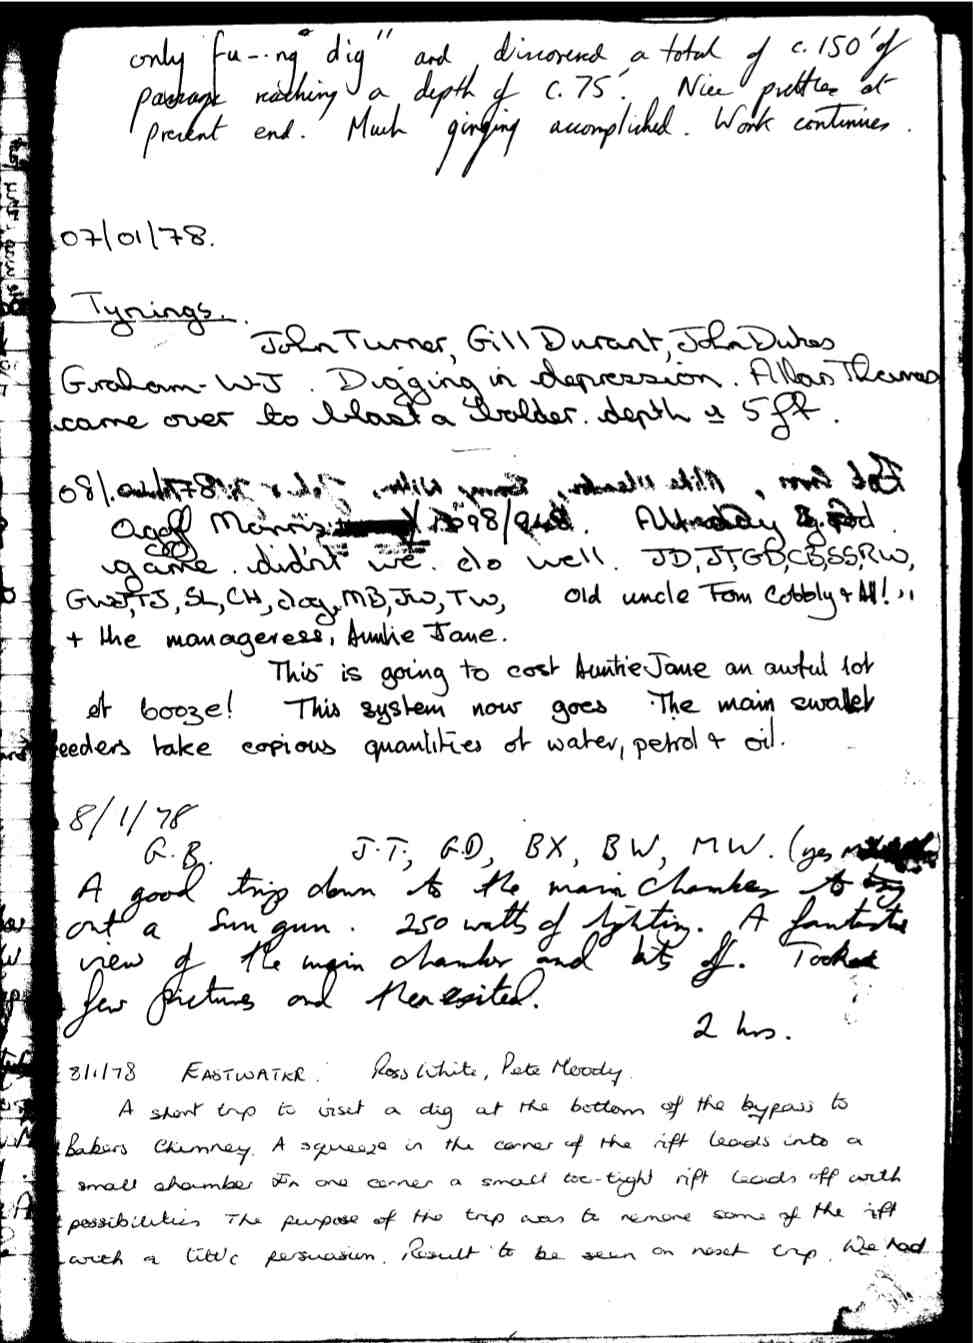 only fu--ng "dig" and discovered a total of c.150' of
passage reaching a depth of c.75'. Nice pretties at
present end. Much ginging accomplished. Work continues.
07/01/78.
Tynings.
John Turner, Gill Durant, John Dukes
Graham-WJ. Digging in depression. Allan Thomas
came over to blast a bolder. depth is 5ft.
08/
Geoff Morris 
game. didn't we do well. JD, JT, GD, CB, SS, RW,
GWJ, TJ, SL, CH, dog, MB, JW, TW, Old uncle Tom Cobbly + All!
+ the manageress, Auntie Jane.
This is going to cost Auntie Jane an awful lot
of booze! This system now goes. The main swallet
feeders take copious quantities of water, petrol + oil.
8/1/78
G.B. J.T., G.D, BX, BW, MW. (yes
A good trip down to the main chamber to try
out a Sun gun. 250 watts of lighting. A fantastic
view of the main chamber and bits off. Took a
few pictures and then exited.
2 hrs.
8/1/78 EASTWATER. Ross White, Pete Moody.
A short trip to visit a dig at the bottom of the bypass to
Bakers Chimney. A squeeze in the corner of the rift leads into a
small chamber. In one corner a small too-tight rift leads off with
possibilities. The purpose of the trip was to remove some of the rift
with a little persuasion. Result to be seen on next trip. We had